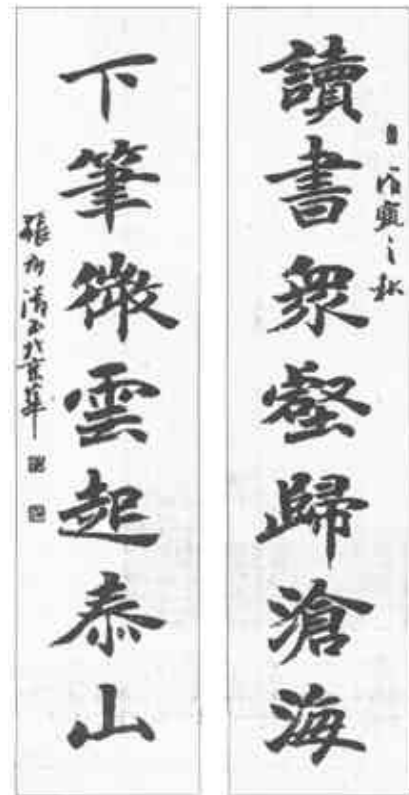 讀書衆壑歸滄海
之秋
下筆微雲起泰山
於京華